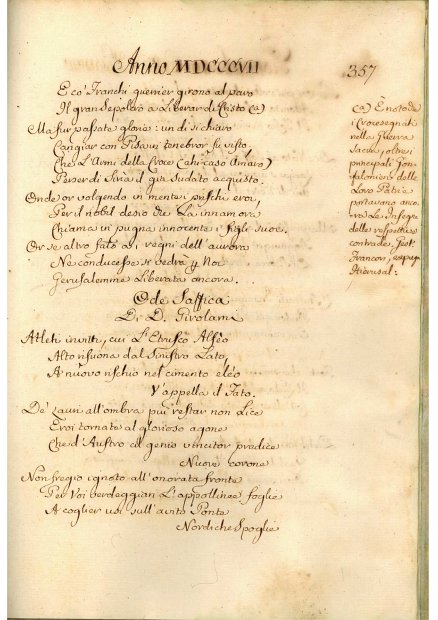 Anno MDCCCVII
357
E co' Franchi guerrier girono al paro
Il gran Sepolcro a Liberar di Cristo (a)
Ma fur passate glorie: un dì sì chiaro
Cangiar con Pisa in tenebror fu visto,
Che L'Armi della Croce (ahi caso Amaro)
Perser di Siria il già sudato acquisto.
Onde or volgendo in mente prischi eroi,
Per il nobil desio che La innamora
Chiama in pugna innocente i figli suoi.
Or se altro fato a i regni dell'aurora
Ne conducesse si vedria Noi
Gerusalemme Liberata ancora..
(a) È noto che
i Crocesegnati
nella Guerra
Sacra, oltre i
principali Gon-
faloniere della
Loro Patria
portavano anco-
ra Le Insegne
delle rispettive
contrade,
Francor,
Hierusal:
Ode Saffica
D. Girolami
Atleti invitti, cui L'Etrusco Alfeo
Alto risuona dal Sinistro Lato,
A nuovo rischio nel cimento eléo
V'appella il Fato.
De' Lauri all'ombra più restar non Lice
Eroi tornate al glorioso agone
Che d'Austro il genio vincitor predice
Nuove corone
Non fregio ignoto all'onorata fronte
Per Voi verdeggian L'appollinee foglie
A coglier usi sull'avito Ponte
Nordiche Spoglie